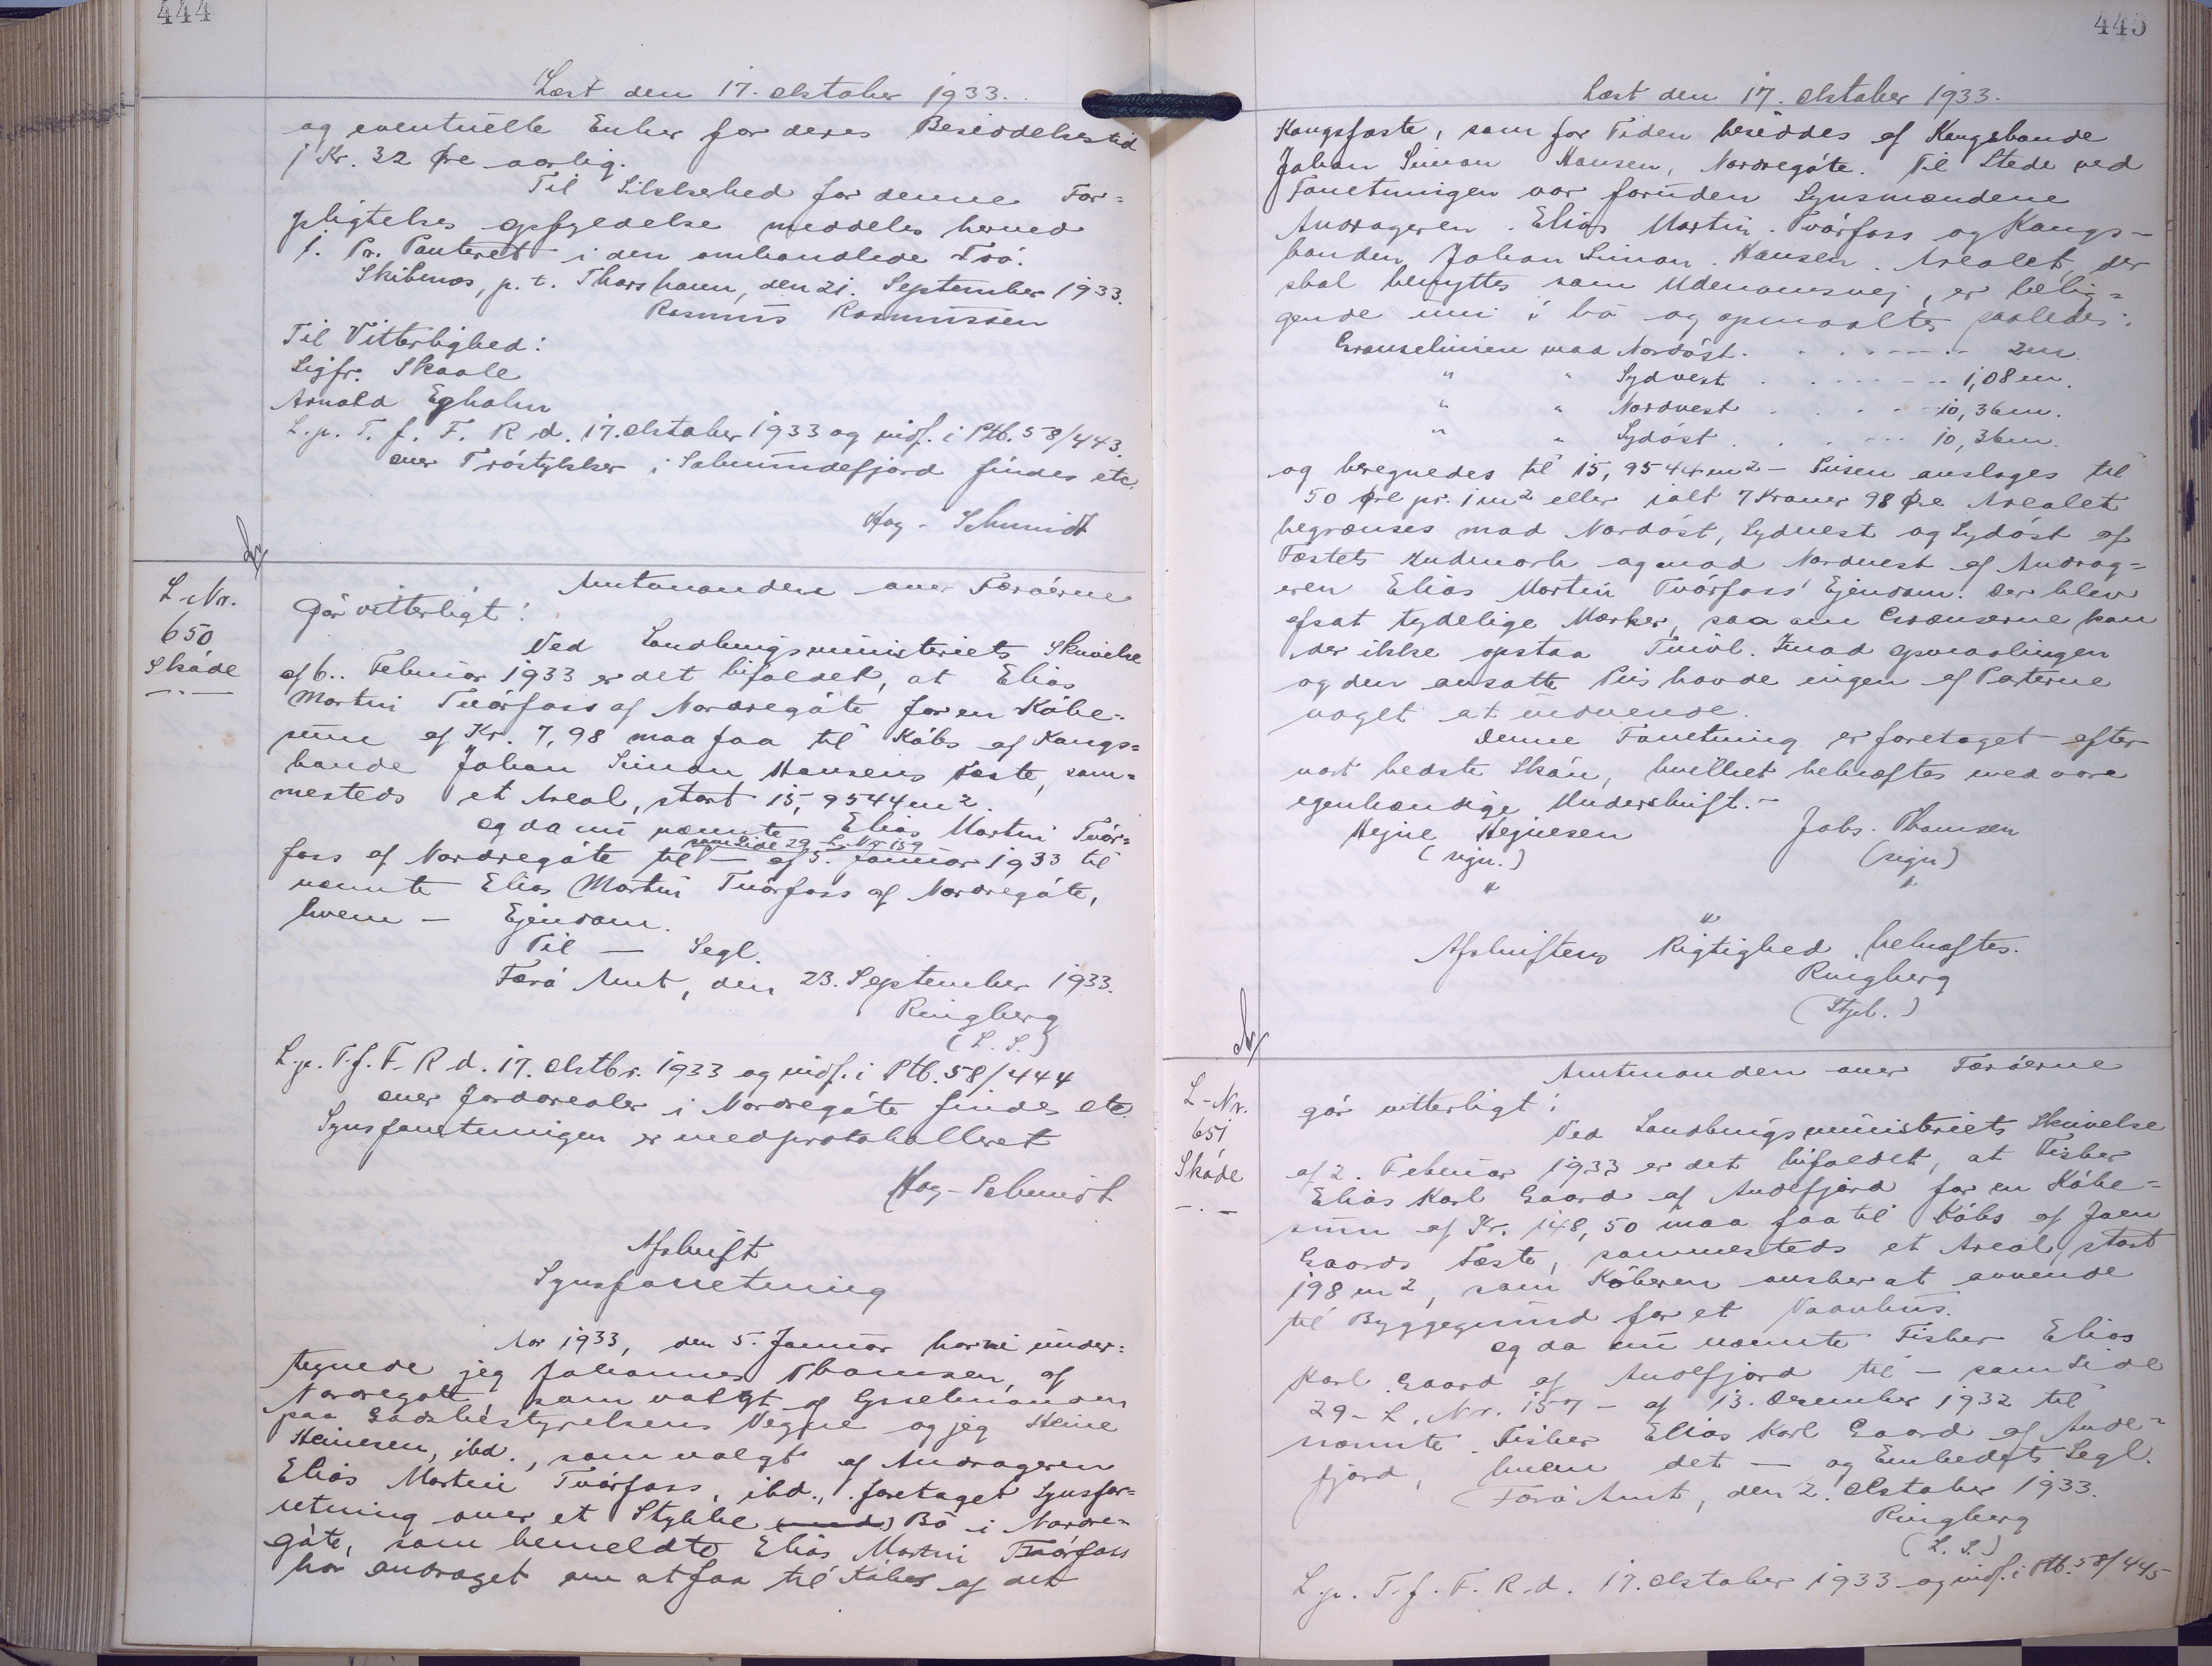 444
Læst den 17. Oktober 1933.
og eventuelle Enker for deres Besiddelsestid
1 Kr. 32 Øre aarlig.
Til Sikkerhed for denne For=
pligtelses Opfyldelse meddeles herved
1. Pr. Panteret i den omhandlede Trö.
Skibenæs, p. t. Thorshavn, den 21. September 1933.
Rasmus Rasmussen
Til Vitterlighed:
Sigfr. Skaale
Arnold Egholm
L. p. T. f. F. R d. 17. Oktober 1933 og indf. i Ptb. 58/443.
over Tröstykker i Salmundefjord findes etc.
Hoy-Schmidt
L-Nr.
650
Sköde
Amtmanden over Færöerne
Gör vitterligt:
Ved Landbrugsministeriets Skrivelse
af 6. Februar 1933 er det bifaldet, at Elias
Martin Tvörfoss af Nordregöte for en Köbe=
sum af Kr. 7,98 maa faa til Köbs af Kongs=
bonde Johan Simon Hansens Fæste, sam=
mesteds et Areal, stort 15,9544 m².
og da nu nævnte Elias Martin Tvör=
som Side 29 L. Nr 159
foss af Nordregöte til — af 5. Januar 1933 til
nævnte Elias Martin Tvörfoss af Nordregöte,
hvem — Ejendom.
Til — Segl.
Færö Amt, den 23. September 1933.
Ringberg
(L. S.)
L. p. T. f. F. R d. 17. Oktbr. 1933 og indf. i Ptb. 58/444
over Jordarealer i Nordregöte findes etc.
Synsforretningen er medprotokolleret
Hoy-Schmidt
Afskrift
Synsforretning
Aar 1933, den 5. Januar har vi under=
tegnede jeg Johannes Thomsen, af
Nordregöte, som valgt af Sysselmanden
paa Godsbestyrelsens Vegne og jeg Heine
Heinesen, ibd., som valgt af Andrageren
Elias Martin Tvörfoss, ibd., foretaget Synsfor=
retning over et Stykke Bö i Nordre=
göte, som bemeldte Elias Martin Tvörfoss
har andraget om at faa til Köbs af det
445
Læst den 17. Oktober 1933.
Kongsfæste, som for Tiden besiddes af Kongsbonde
Johan Simon Hansen, Nordregöte. Til Stede ved
Forretningen var foruden Synsmændene
Andrageren Elias Martin Tvörfoss og Kongs-
bonden Johan Simon Hansen. Arealet, der
skal benyttes som Udenomsvej, er belig=
gende inni i bö og opmaaltes saaledes:
Grænselinien mod Nordöst. . . . . . 2 m.
" " Sydvest . . . . . . 1,08 m.
" " Nordvest . . . . 10,36 m.
" " Sydöst . . . . . 10,36 m.
og beregnedes til 15,9544 m² – Prisen anslages til
50 Øre pr. 1 m² eller ialt 7 Kroner 98 Øre Arealet
begrænses mod Nordöst, Sydvest og Sydöst af
Fæstets Indmark og mod Nordvest af Andrag=
eren Elias Martin Tvörfoss' Ejendom. Der blev
afsat tydelige Mærker, saa om Grænserne kan
der ikke opstaa Tvivl. Imod Opmaalingen
og den ansatte Pris havde ingen af Parterne
noget at indvende.
Denne Forretning er foretaget efter
vort bedste Skön, hvilket bekræftes med vore
egenhændige Underskrift. –
Hejne Hejnesen Johs. Thomsen
(sign.) (sign)
" "
"
Afskriftens Rigtighed bekræftes.
Ringberg
(Stpl.)
L-Nr.
651
Sköde
Amtmanden over Færöerne
gör vitterligt:
Ved Landbrugsministeriets Skrivelse
af 2. Februar 1933 er det bifaldet, at Fisker
Elias Karl Gaard af Andefjord for en Köbe=
sum af Kr. 148,50 maa faa til Köbs af Joen
Gaards Fæste, sammesteds et Areal, stort
198 m², som Köberen önsker at anvende
til Byggegrund for et Vaanhus.
og da nu nævnte Fisker Elias
Karl Gaard af Andefjord til — som Side
29 - L. Nr. 157 – af 13. December 1932 til
nævnte Fisker Elias Karl Gaard af Ande=
fjord, hvem det — og Embedets Segl.
Færö Amt, den 2. Oktober 1933.
Ringberg
(L. S.)
L. p. T. f. F. R. d. 17. Oktober 1933 og indf. i Ptb. 58/445